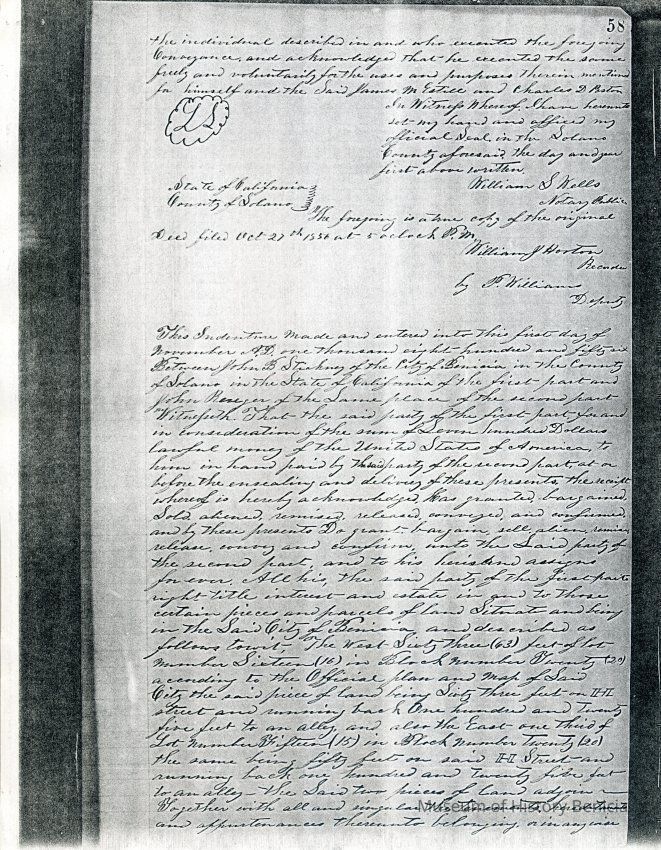 58
the individual described in and who executed the foregoing
Conveyance, and acknowledged that he executed the same
freely and voluntarily for the uses and purposes therein mentiond
for himself and the said James M Estill and Charles D
In Witness Whereof, I have hereunto
set my hand and affixed my
official Seal in the Solano
County aforesaid, the day and year
first above written.
L S
William S Wells
Notary Public
State of California
County of Solano
The foregoing is a true copy of the original
Deed filed Oct 27th 1856 at 5 oclock P.M.
William J Horton
Recorder
by P. Williams
Deputy
This Indenture Made and entered into this first day of
November A.D. one thousand eight hundred and fifty six
Between John B. of the City of Benicia in the County
of Solano in the State of California of the first part and
John of the Same place of the second part
Witnesseth. That the said party of the first part for and
in consideration of the sum of Seven hundred Dollars
lawful money of the United States of America, to
him in hand paid by the said party of the second part, at or
before the ensealing and delivery of these presents, the receipt
whereof is hereby acknowledged, Has granted, bargained,
Sold, aliened, remised, released, conveyed, and confirmed
and by these presents Do grant, bargain, sell, alien, remise,
release, convey and confirm, unto the Said party of
the second part, and to his heirs and assigns
forever, All his, the said party of the first part
right title interest and estate in and to those
certain pieces and parcels of land Situate and being
in the Said City of Benicia and described as
follows towit. The West Sixty three (63) feet of lot
Number Sixteen (16) in Block number Twenty (20)
according to the Official plan and map of Said
City, the said piece of land being Sixty three feet on H
street and running back One hundred and twenty
five feet to an alley and also the East one third of
Lot Number Fifteen (15) in Block Number Twenty (20)
the same being fifty feet on said H Street and
running back one hundred and twenty five feet
to an alley the Said two pieces of land adjoin
Together with all and singular
and appurtenances thereunto belonging
Museum of History Benicia